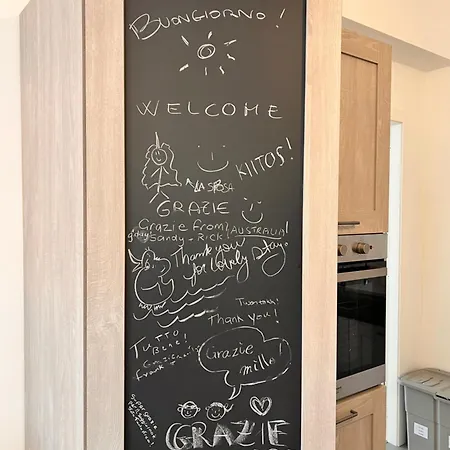 BUONGIORNO!
WELCOME
KIITOS!
LA SPOSA
GRAZIE
Grazie from AUSTRALIA!
g'day! Sandy - Rick
Thank you
for lovely stay.
Thank you!
TUTTO
BENE!
Grazie
mille
frank
GRAZIE